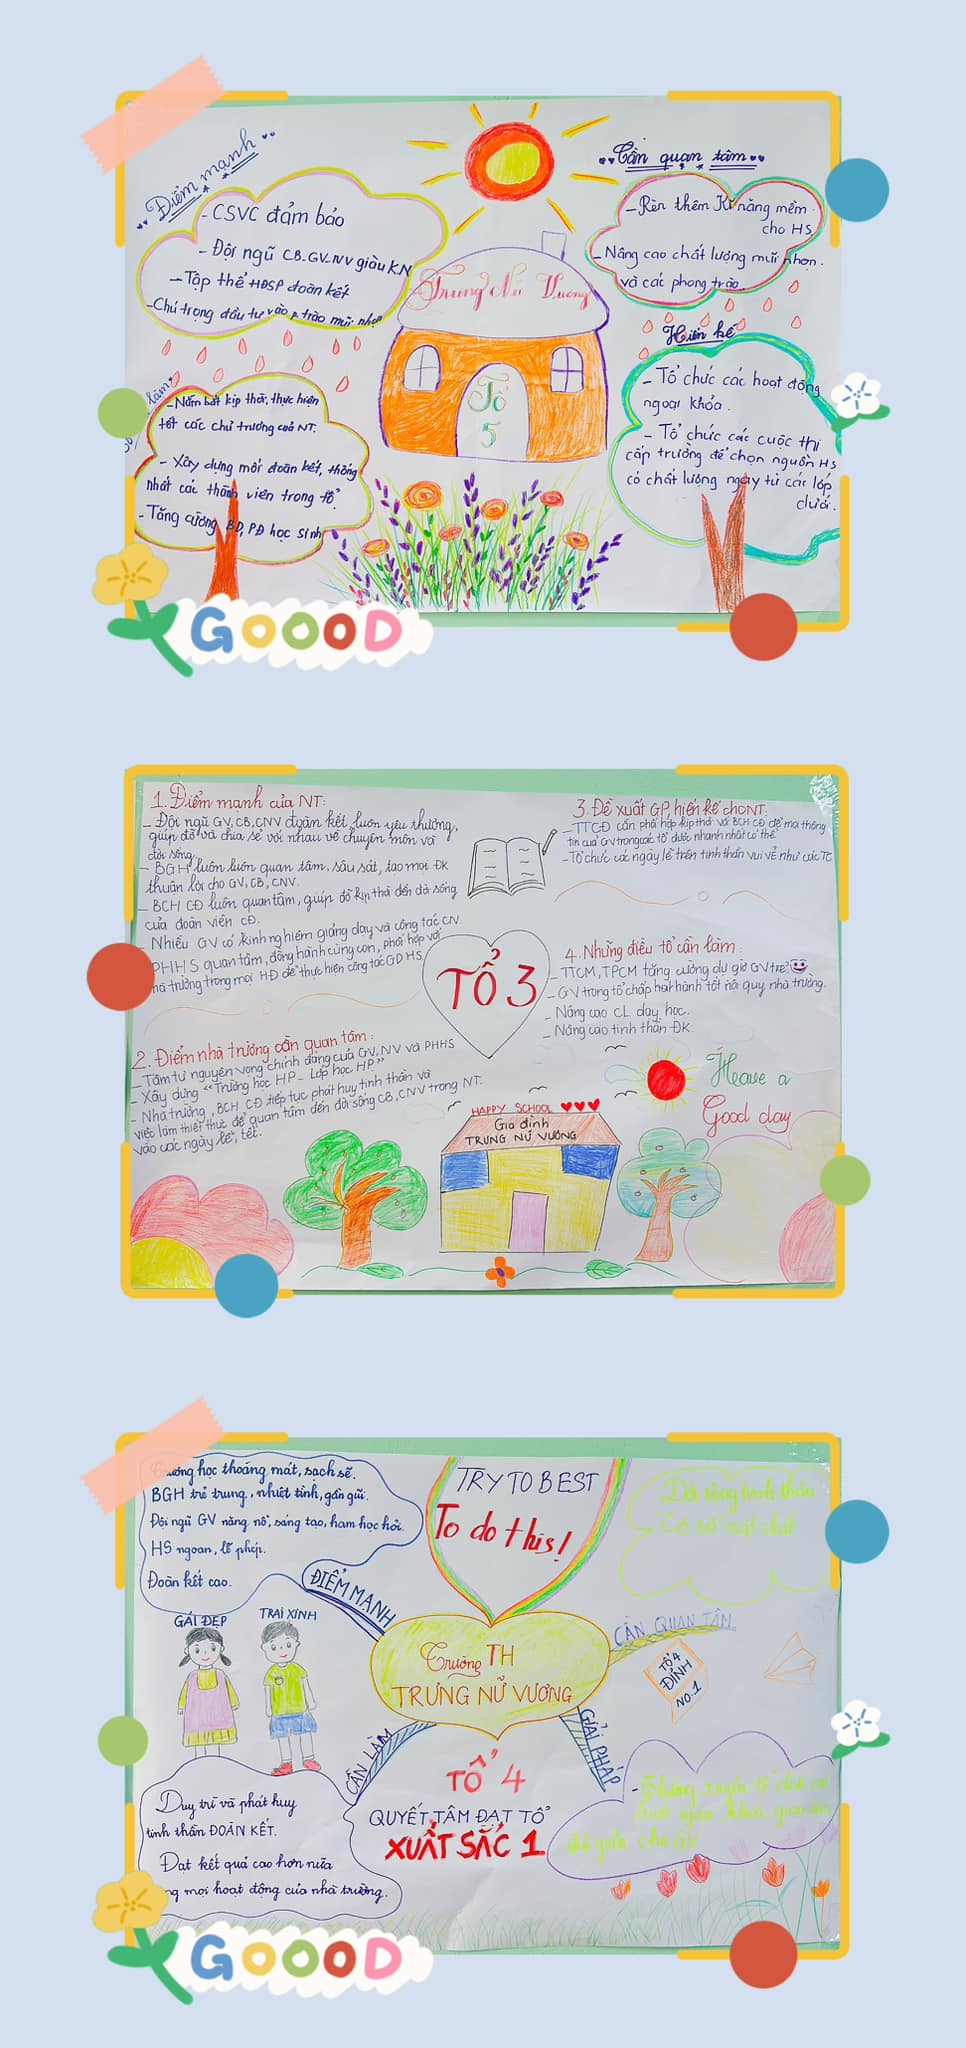 Điểm mạnh
- CSVC đảm bảo
- Đội ngũ CB-GV-NV giàu KN
- Tập thể HĐSP đoàn kết
- Chú trọng đầu tư vào p.trào mũi nhọn
Cần quan tâm
- Rèn thêm Kĩ năng mềm
cho HS
- Nâng cao chất lượng mũi nhọn
và các phong trào
Trưng Nữ Vương
Tổ
5
Hiến kế
- Tổ chức các hoạt động
ngoại khóa.
- Tổ chức các cuộc thi
cấp trường để chọn nguồn HS
có chất lượng ngay từ các lớp
dưới.
làm
- Nắm bắt kịp thời, thực hiện
tốt các chủ trương của NT.
- Xây dựng mối đoàn kết, thống
nhất các thành viên trong tổ.
- Tăng cường BD, PĐ học sinh
GOOOD
1. Điểm mạnh của NT:
- Đội ngũ GV, CB, CNV đoàn kết, luôn yêu thương,
giúp đỡ và chia sẻ với nhau về chuyên môn và
đời sống.
- BGH luôn luôn quan tâm, sâu sát, tạo mọi ĐK
thuận lợi cho GV, CB, CNV.
- BCH CĐ luôn quan tâm, giúp đỡ kịp thời đến đời sống
của đoàn viên CĐ.
- Nhiều GV có kinh nghiệm giảng dạy và công tác CN.
PHHS quan tâm, đồng hành cùng con, phối hợp với
nhà trường trong mọi HĐ để thực hiện công tác GD HS.
2. Điểm nhà trường cần quan tâm:
- Tâm tư nguyện vọng chính đáng của GV, NV và PHHS
- Xây dựng "Trường học HP - Lớp học HP"
- Nhà trường, BCH CĐ tiếp tục phát huy tinh thần và
việc làm thiết thực để quan tâm đến đời sống CB, CNV trong NT.
vào các ngày lễ, tết.
3. Đề xuất GP, hiến kế cho NT:
- TTCĐ cần phối hợp kịp thời với BCH CĐ để mọi thông
tin của GV trong các tổ được nhanh nhất có thể
- Tổ chức các ngày lễ trên tinh thần vui vẻ như các TC
TỔ 3
4. Những điều tổ cần làm:
- TTCM, TPCM tăng cường dự giờ GV trẻ
- GV trong tổ chấp hành tốt nội quy nhà trường.
- Nâng cao CL dạy học.
- Nâng cao tinh thần ĐK.
Heave a
Good day
HAPPY SCHOOL
Gia đình
TRƯNG NỮ VƯƠNG
Trường học thoáng mát, sạch sẽ.
BGH trẻ trung, nhiệt tình, gần gũi.
Đội ngũ GV năng nổ, sáng tạo, ham học hỏi.
HS ngoan, lễ phép.
Đoàn kết cao.
ĐIỂM MẠNH
TRY TO BEST
To do this!
Đời sống tinh thần
Cơ sở vật chất
CẦN QUAN TÂM
GÁI ĐẸP
TRAI XINH
Trường TH
TRƯNG NỮ VƯƠNG
TỔ 4
ĐỈNH
NO.1
CẦN LÀM
GIẢI PHÁP
TỔ 4
QUYẾT TÂM ĐẠT TỔ
XUẤT SẮC 1
Duy trì và phát huy
tinh thần ĐOÀN KẾT.
Đạt kết quả cao hơn nữa
mọi hoạt động của nhà trường.
- Thường xuyên tổ chức
cho GV
GOOOD